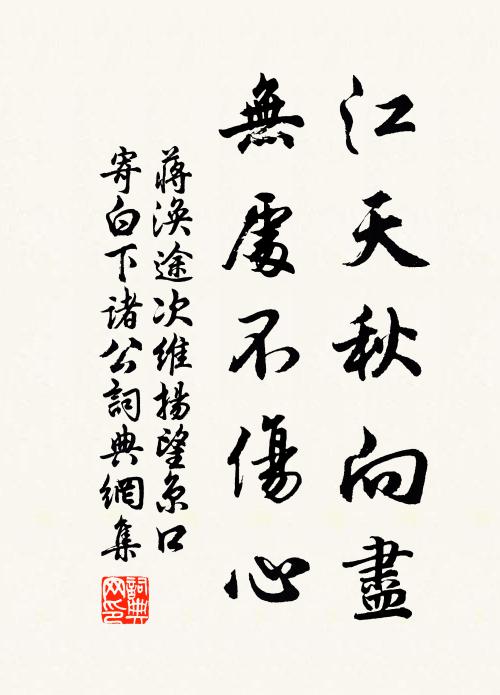 江天秋向盡
無處不傷心
蔣渙途次維揚望京口
寄白下諸公詞典網集
詞典
网印